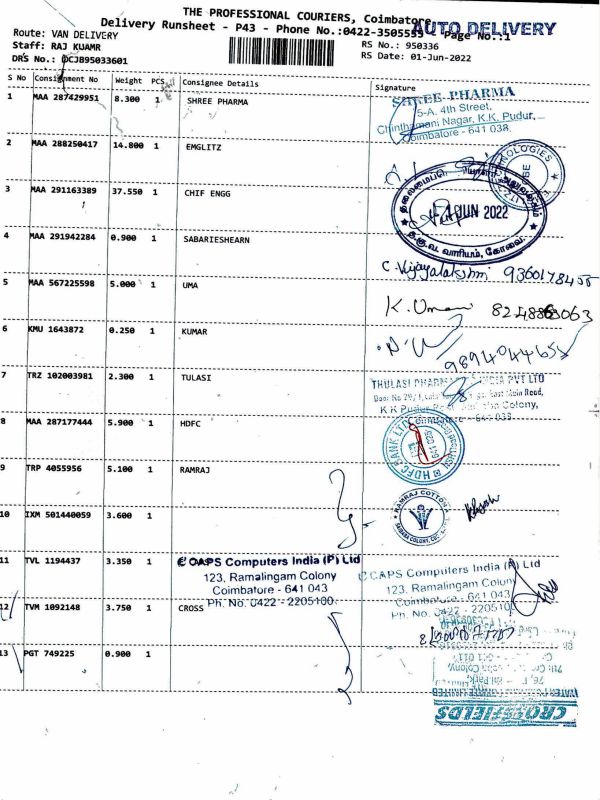 THE PROFESSIONAL COURIERS, Coimbatore
AUTO DELIVERY
Delivery Runsheet - P43 - Phone No.:0422-3505555 Page No.:1
Route: VAN DELIVERY
RS No.: 950336
Staff: RAJ KUAMR
RS Date: 01-Jun-2022
DRS No.: DCJB95033601
S No Consignment No Weight PCS Consignee Details Signature
1 MAA 287429951 8.300 1 SHREE PHARMA
SHREE PHARMA
5-A, 4th Street,
Chinthamani Nagar, K.K. Pudur,
Coimbatore - 641 038.
2 MAA 288250417 14.800 1 EMGLITZ
3 MAA 291163389 37.550 1 CHIF ENGG
JUN 2022
த.கு.வ. வாரியம், கோவை.
4 MAA 291942284 0.900 1 SABARIESHEARN
C. Vijayalakshmi
5 MAA 567225598 5.000 1 UMA
K. Uma
6 KMU 1643872 0.250 1 KUMAR
7 TRZ 102003981 2.300 1 TULASI
THULASI PHARMACIES INDIA PVT LTD
East Main Road,
K K Pudur
Colony,
8 MAA 287177444 5.900 1 HDFC
HDFC BANK LTD
9 TRP 4055956 5.100 1 RAMRAJ
RAMRAJ COTTON
10 IXM 501440059 3.600 1
11 TVL 1194437 3.350 1
CAPS Computers India (P) Ltd
123, Ramalingam Colony
Coimbatore - 641 043
Ph. No. 0422 - 2205100.
CAPS Computers India (P) Ltd
123, Ramalingam Colony
Coimbatore - 641 043
Ph. No. 0422 - 2205100
12 TVM 1092148 3.750 1 CROSS
13 PGT 749225 0.900 1
CROSSFIELDS